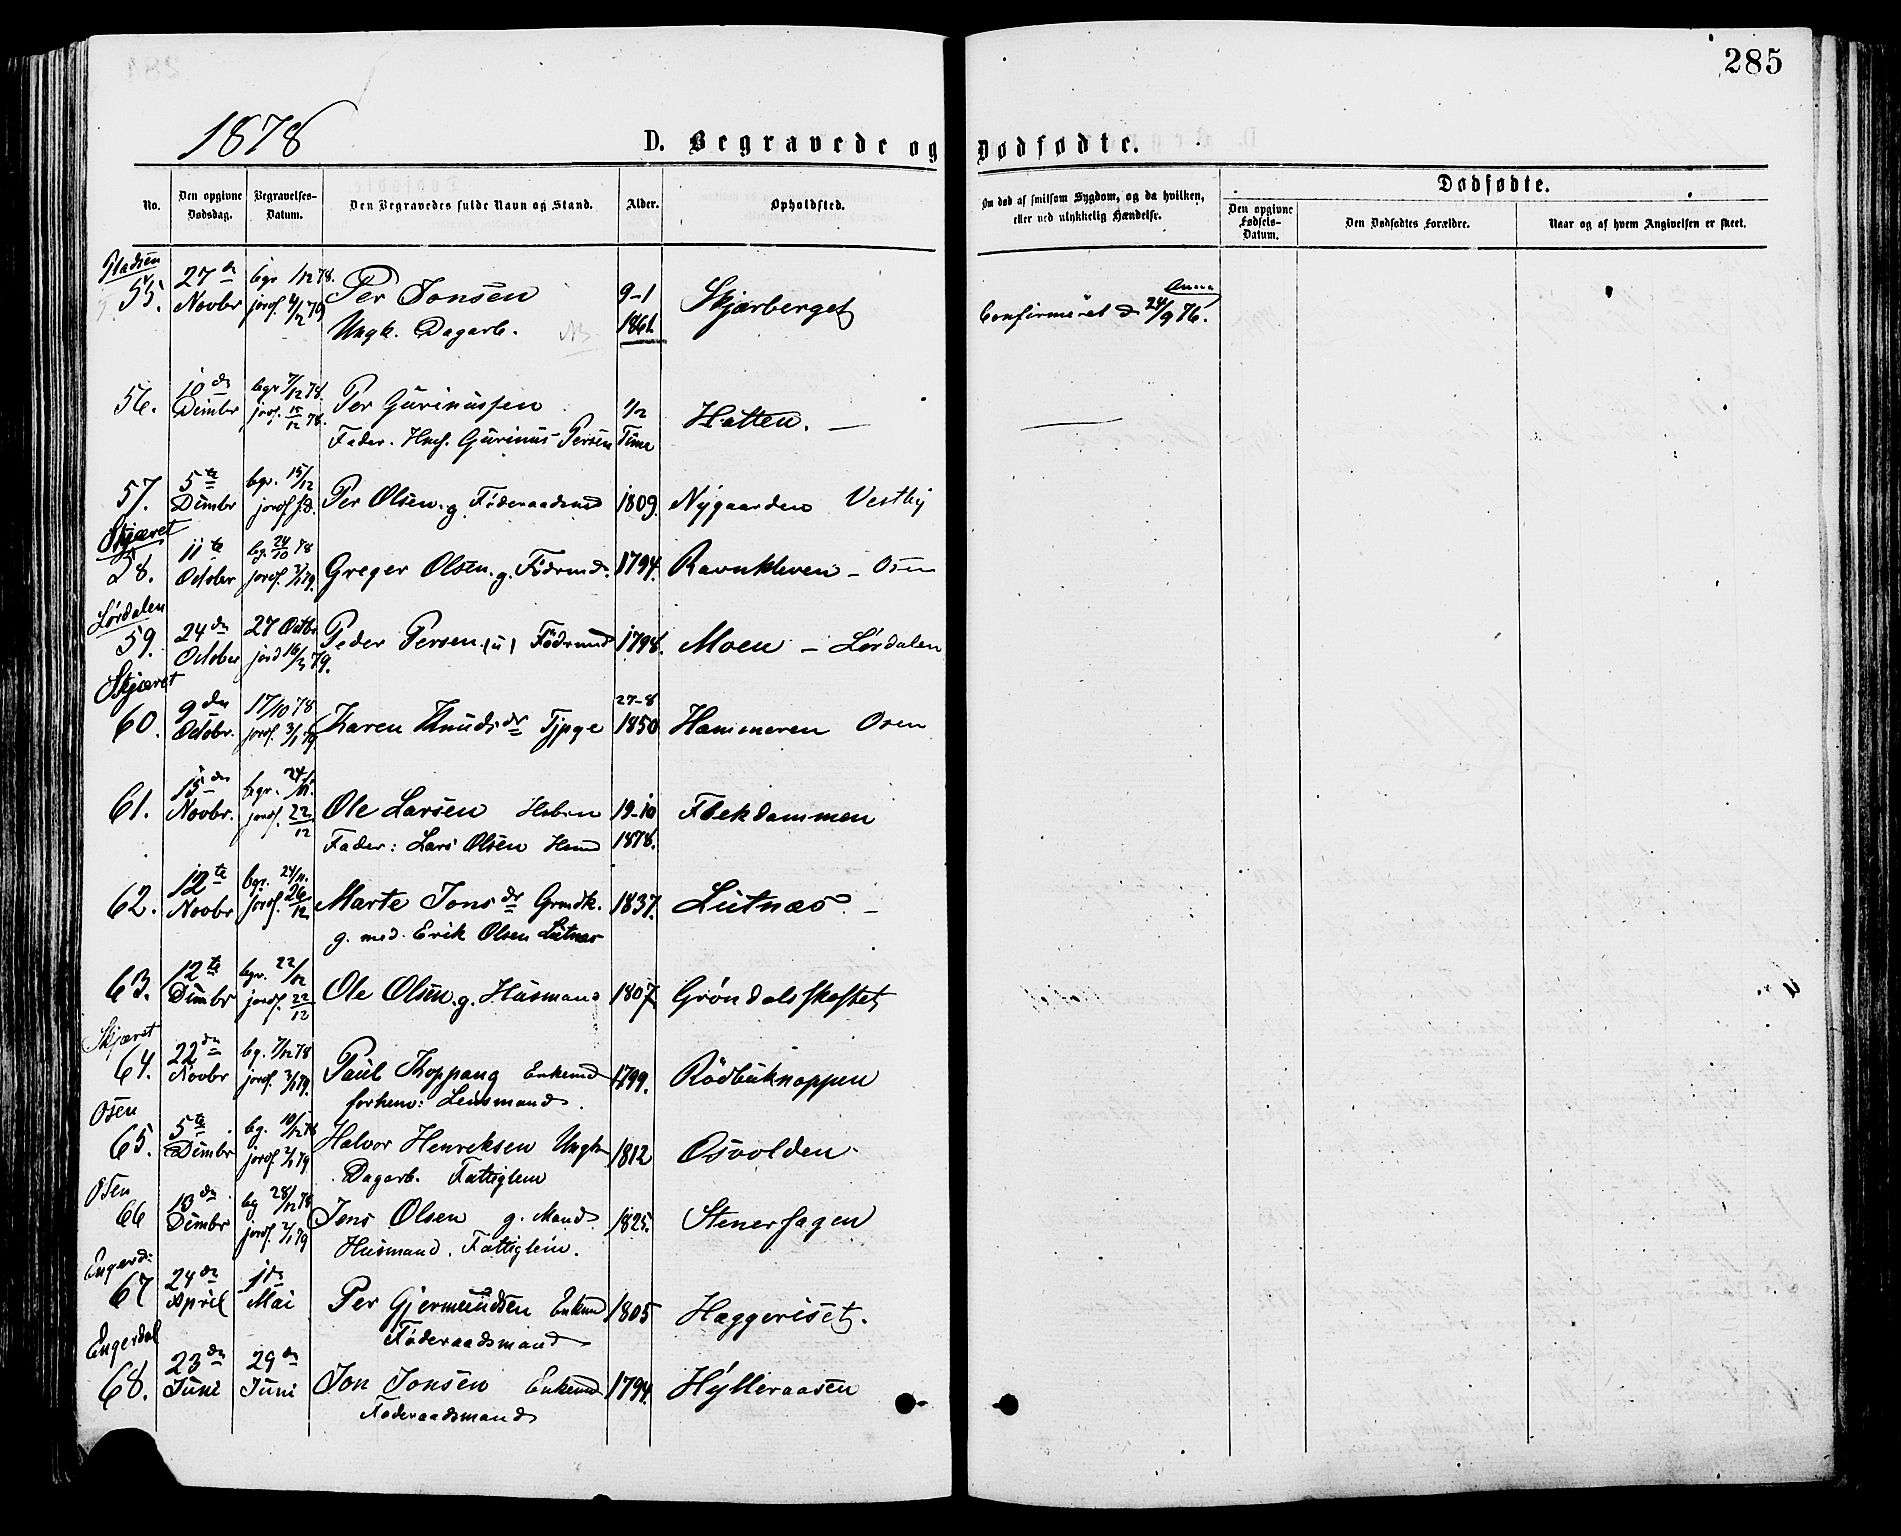 285
1878
D. Begravede og Dødfødte.
No.
Den opgivne Dødsdag.
Begravelses-Datum.
Den Begravedes fulde Navn og Stand.
Alder.
Opholdsted.
Om død af smitsom Sygdom, og da hvilken, eller ved ulykkelig Hændelse.
Dødfødte.
Den opgivne Fødsels-Datum.
Den Dødfødtes Forældre.
Naar og af hvem Angivelsen er skeet.
55. 27de begr 1/12 78. Per Jonsen 9-1 Skjærberget Confirmeret d 24/9 76.
Novbr jordf. Ungk. Dagarb. 1861.
56. 10de begr 7/12 78. Per Gurinussen 1/2 Hatten. —
Dcmbr jordf. 15/12 78. Fader. Gurinus Persen Time
57. 5te begr. 15/12 Per Olsen. g. Føderaadsmd 1809. Nygaarden Vestby
Dcmbr jordf. s.d.
Skjæret
58. 11te bg. 24/10 78 Greger Olsen. g. Födrmd. 1794. Ravnkleven – Osen
October jordf. 3/1 79.
Lørdalen
59. 24de 27 Octbr Peder Persen. (u) Födrmd 1798. Moen – Lørdalen
October jord 16/3 79.
Skjæret
60. 9de 17/10 78 Karen Knudsdr Tjpge 27-8 1850 Hammeren Osen
Octobr. jordf. 3/1 79
61. 15de begr. 24/11. Ole Larsen 19-10 Flekdammen
Novbr. jordf. 22/12 Fader: Lars Olsen 1878.
62. 12te bgr. 24/11. Marte Jonsdr Grmdk. 1837. Lutnæs. –
Novbr jordf. 26/12 g. med. Erik Olsen Lutnæs
63. 12te bgr. 22/12 Ole Olsen. g. Husmand 1807 Grøndalsskaftet
Dcmbr jordf. 22/12
Skjæret
64. 22de bg. 7/12 78 Paul Koppang Enkemd 1799. Rödbuknappen
Novbr jordf. 3/1 79. forhenv: Lensmand.
Osen
65. 5te bg. 10/12 78 Halvor Henriksen Ungk 1812 Osvolden
Dcmbr jordf 2/1 79 Dagarb. Fattiglem
Osen
66 13de bg 28/12 78 Jens Olsen g. Mand 1825. Stenersagen
Dcmbr jordf. 2/1 79 Husmand. Fattiglem.
Engerd:
67 24de 1de Per Gjermundsen Enkemd 1805 Haggeriset.
April Mai Føderaadsmand
Engerdal
68. 23de 29de Jon Jonsen Enkemd 1794. Hylleraasen
Juni Juni Føderaadsmand